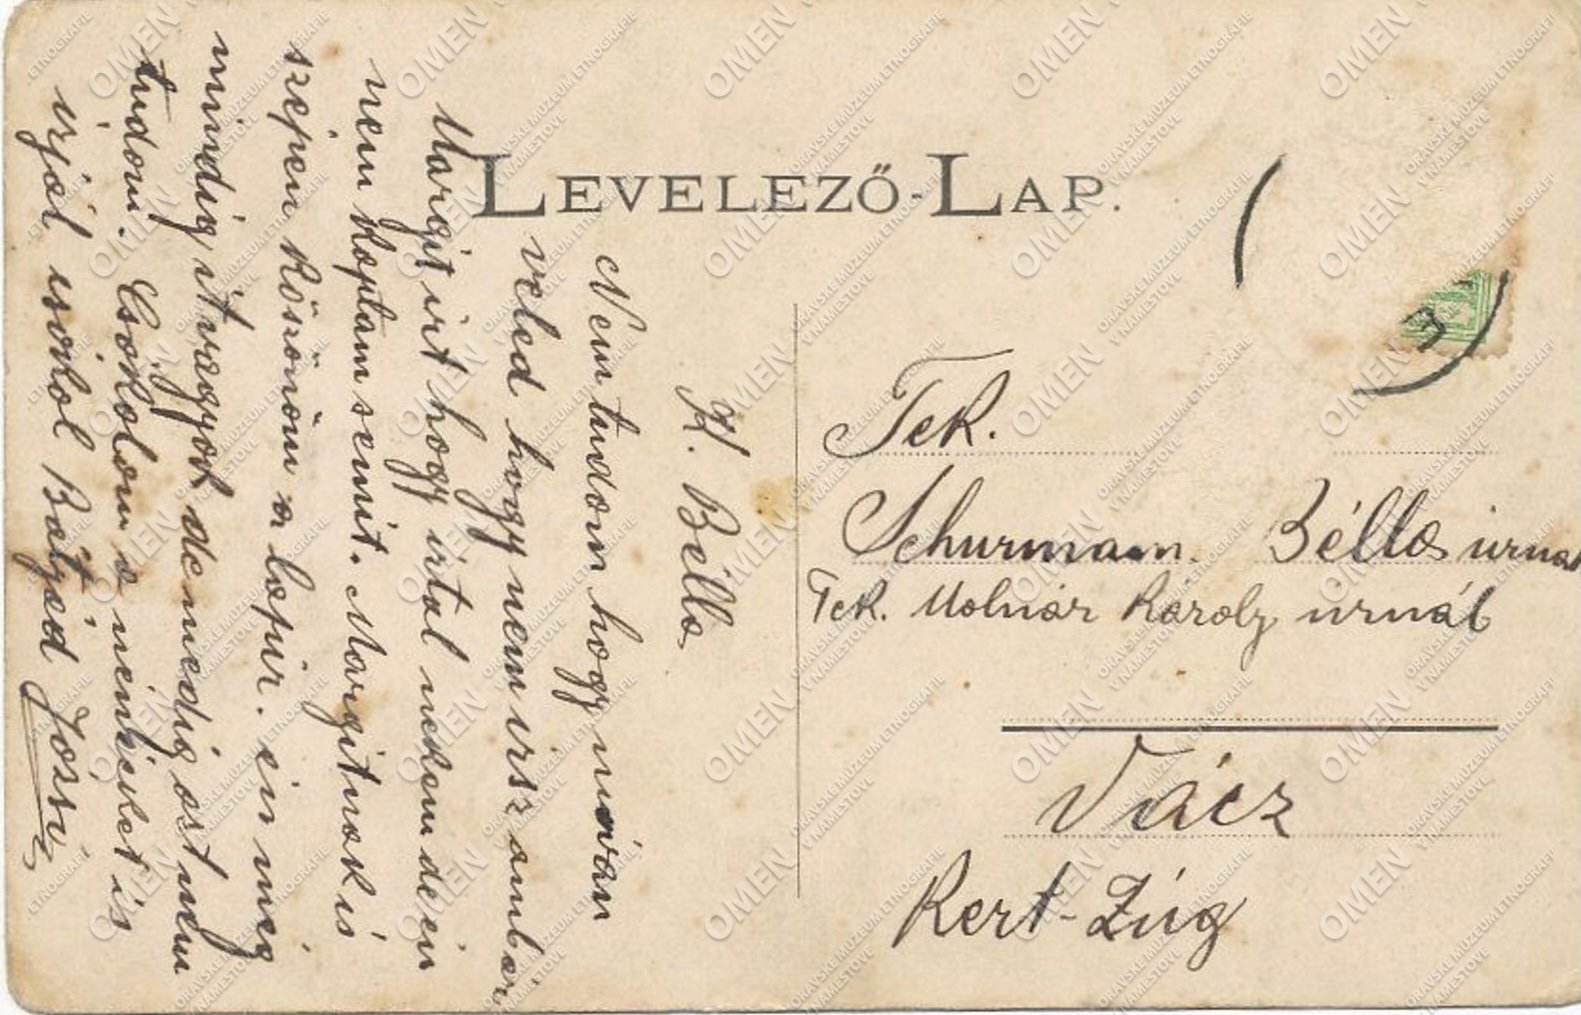 LEVELEZŐ-LAP.
K. Bélla
Nem tudom hogy mi van
veled hogy nem irsz ambár
Margit irt hogy irtal nekem de én
nem kaptam semit. Margitnak is
szépen köszönöm a lapir. én még
mindig it vagyok de medig ast nem
tudom. Csokolom a nénikéket is
irjál csokol Bátyád Józsi
Tek.
Schurmann. Bélla urnak
Tek. Molnár Károly urnál
Vácz
Kert-Zúg
OMEN
ORAVSKE MÚZEUM ETNOGRAFIE
V NAMESTOVE